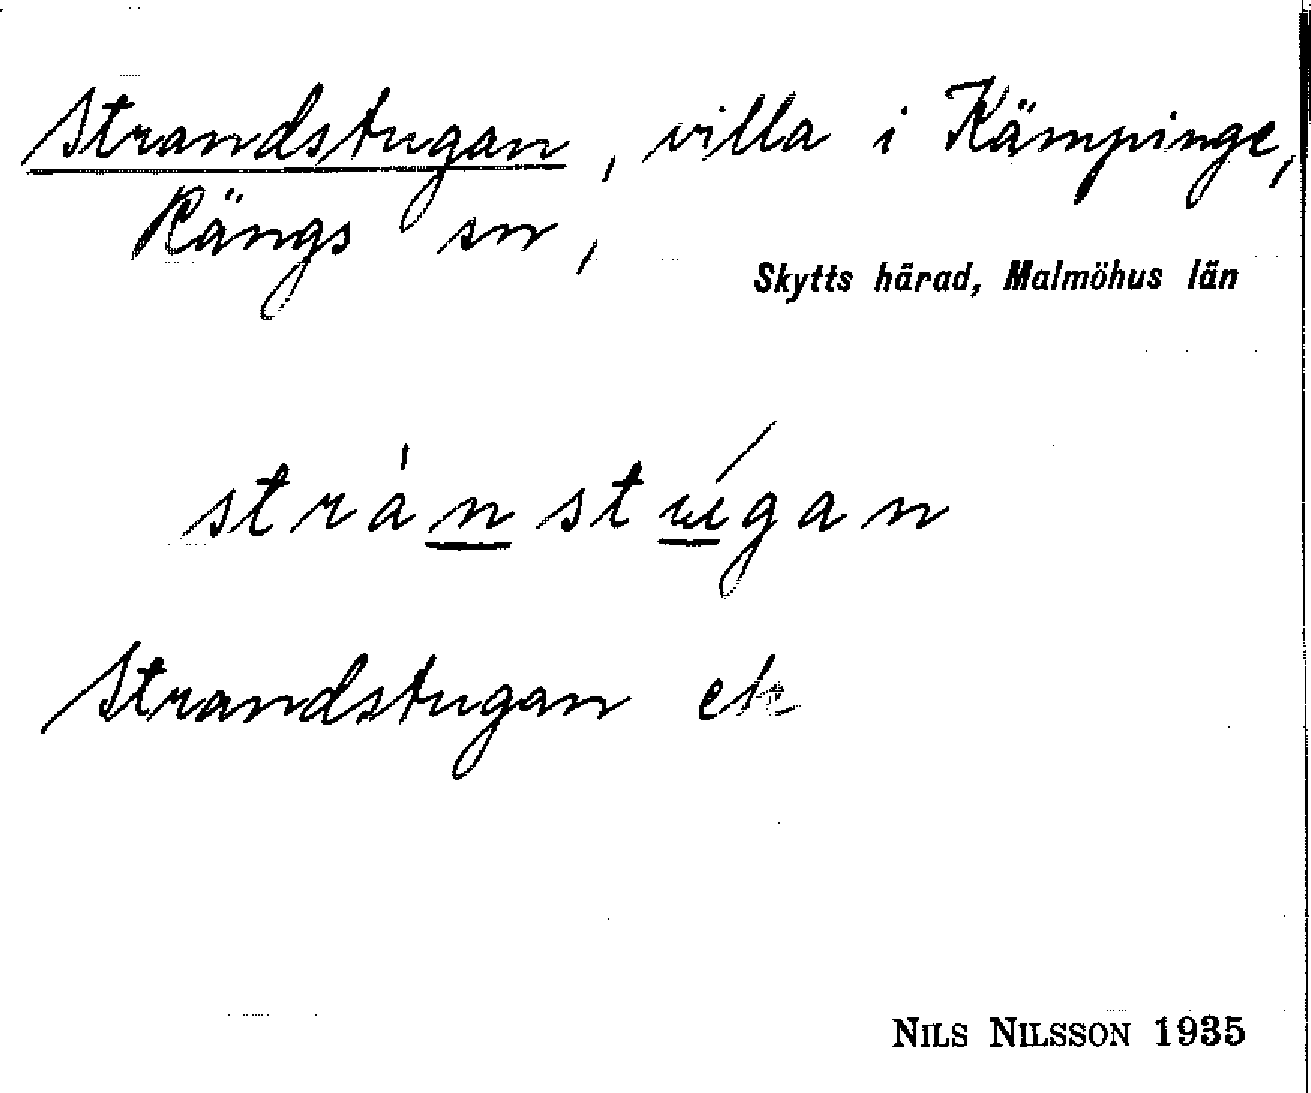 Strandstugan, villa i Kämpinge,
Rängs sn,
Skytts härad, Malmöhus län
stránstúgan
Strandstugan ek
NILS NILSSON 1935